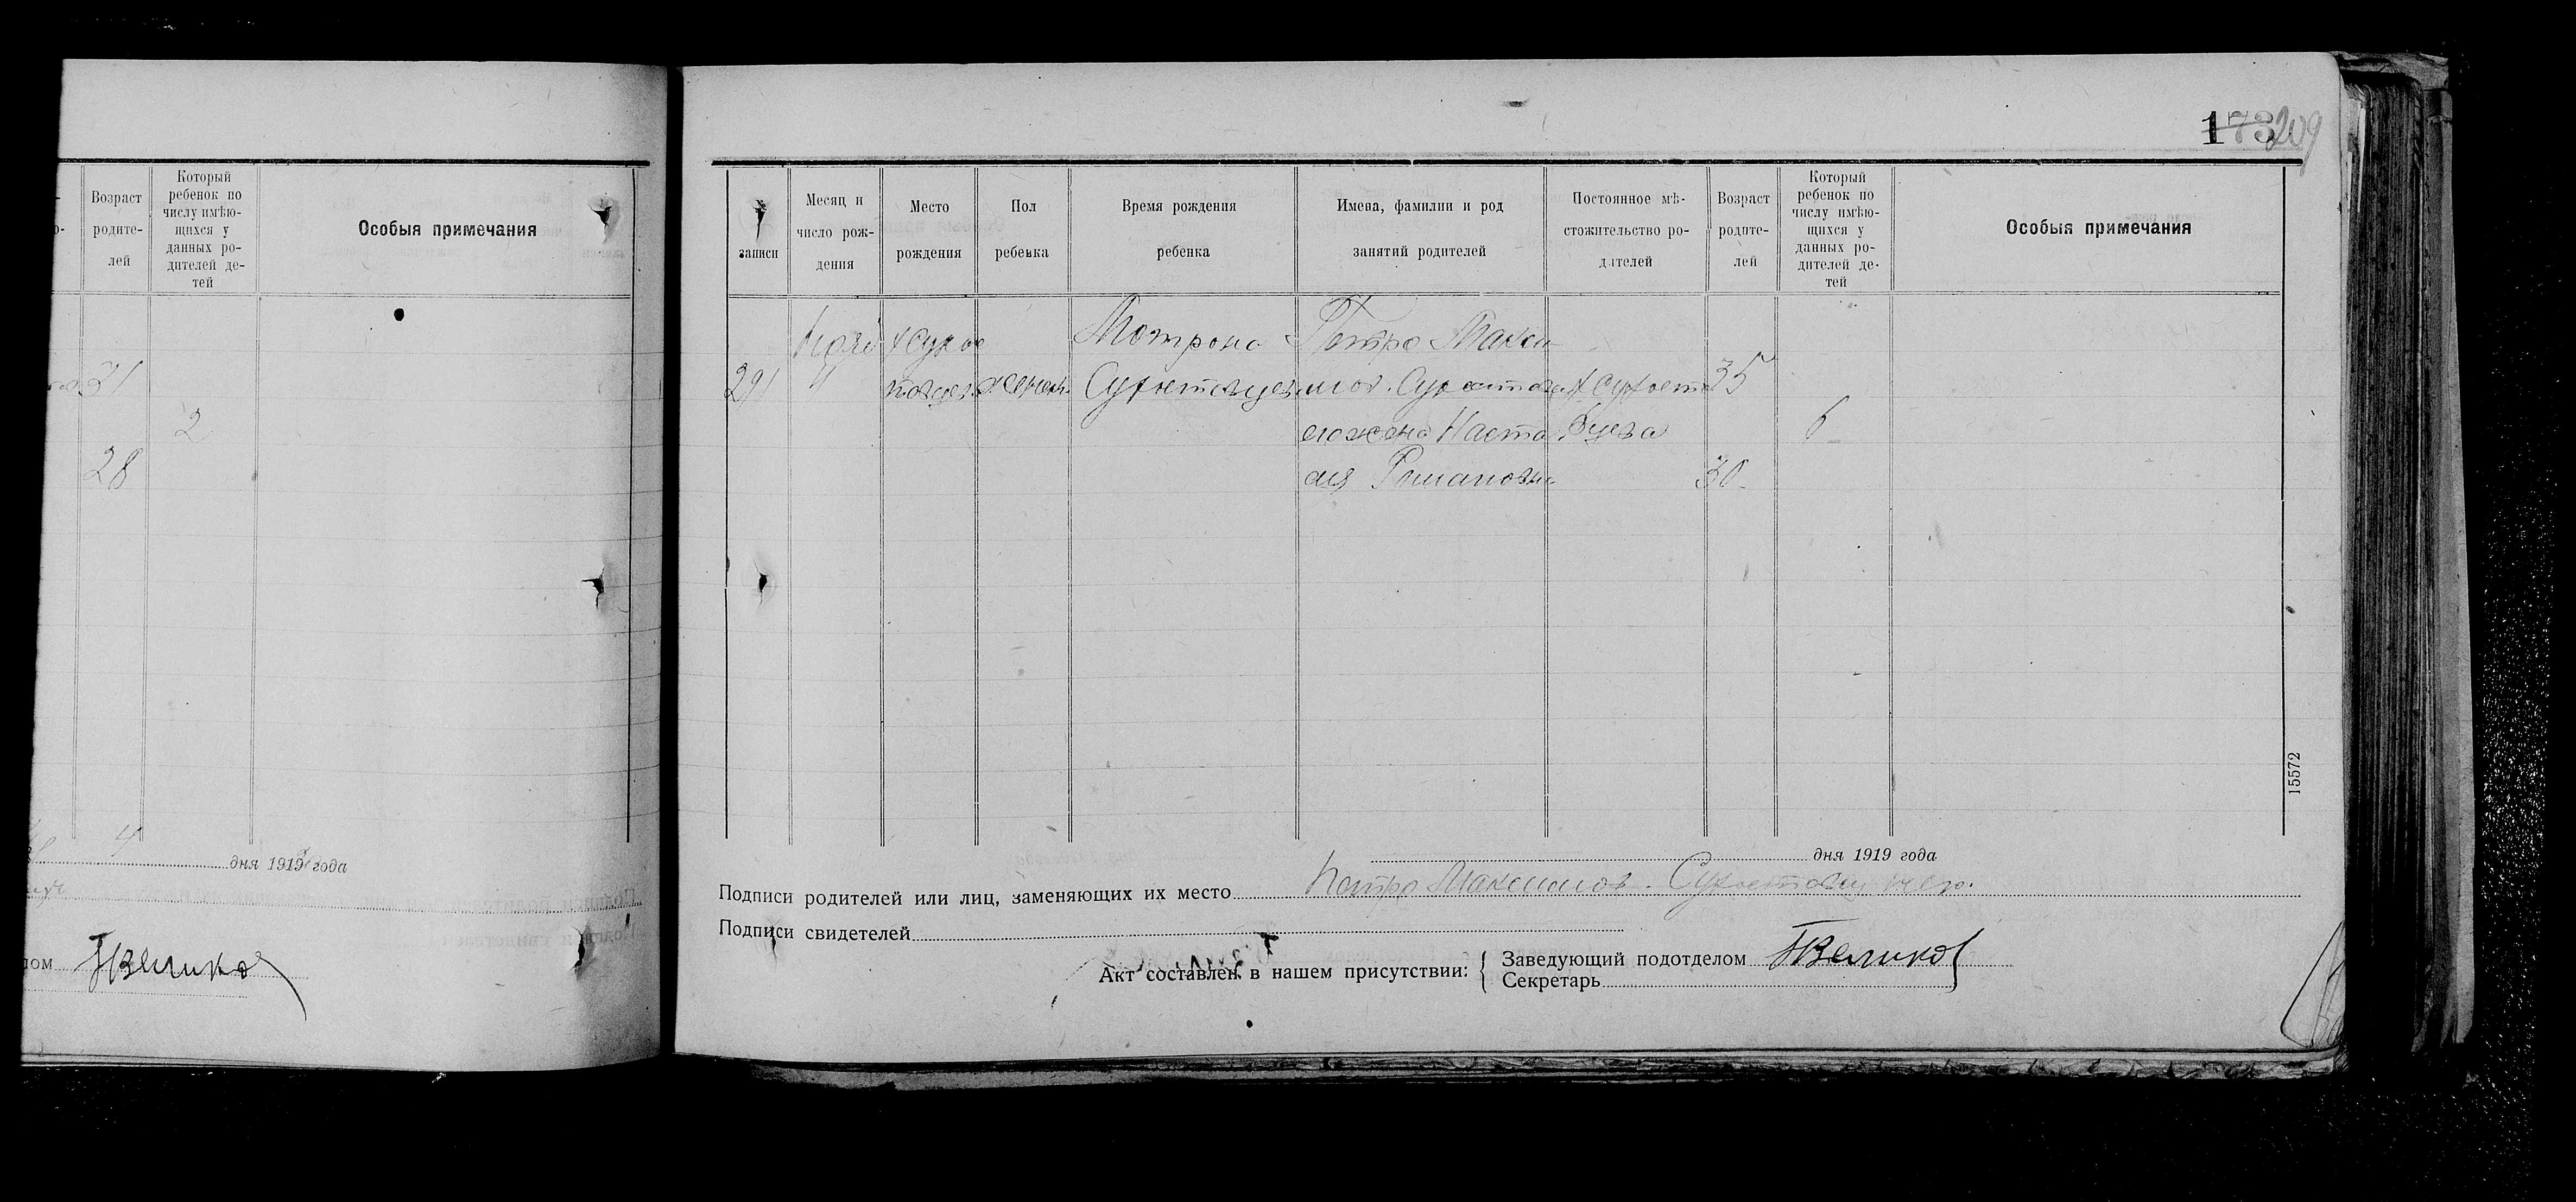 173 209
Возраст
родите-
лей
Который
ребенок по
числу имѣю-
щихся у
данных ро-
дителей де-
тей
Особыя примечания
31
2
28
4
дня 1919 года
Великов
записи
Месяц и
число рож-
дения
Место
рождения
Пол
ребенка
Время рождения
ребенка
Имена, фамилии и род
занятий родителей
Постоянное мѣ-
стожительство ро-
дителей
Возраст
родите-
лей
Который
ребенок по
числу имѣю-
щихся у
данных ро-
дителей де-
тей
Особыя примечания
291
4
женск
Мотрона
Петро Макси
мов.
его жена Наста
сия Романовна
35
30
6
15572
дня 1919 года
Подписи родителей или лиц, заменяющих их место Петро Максимов.
Подписи свидетелей
Акт составлен в нашем присутствии:
Заведующий подотделом Великов
Секретарь